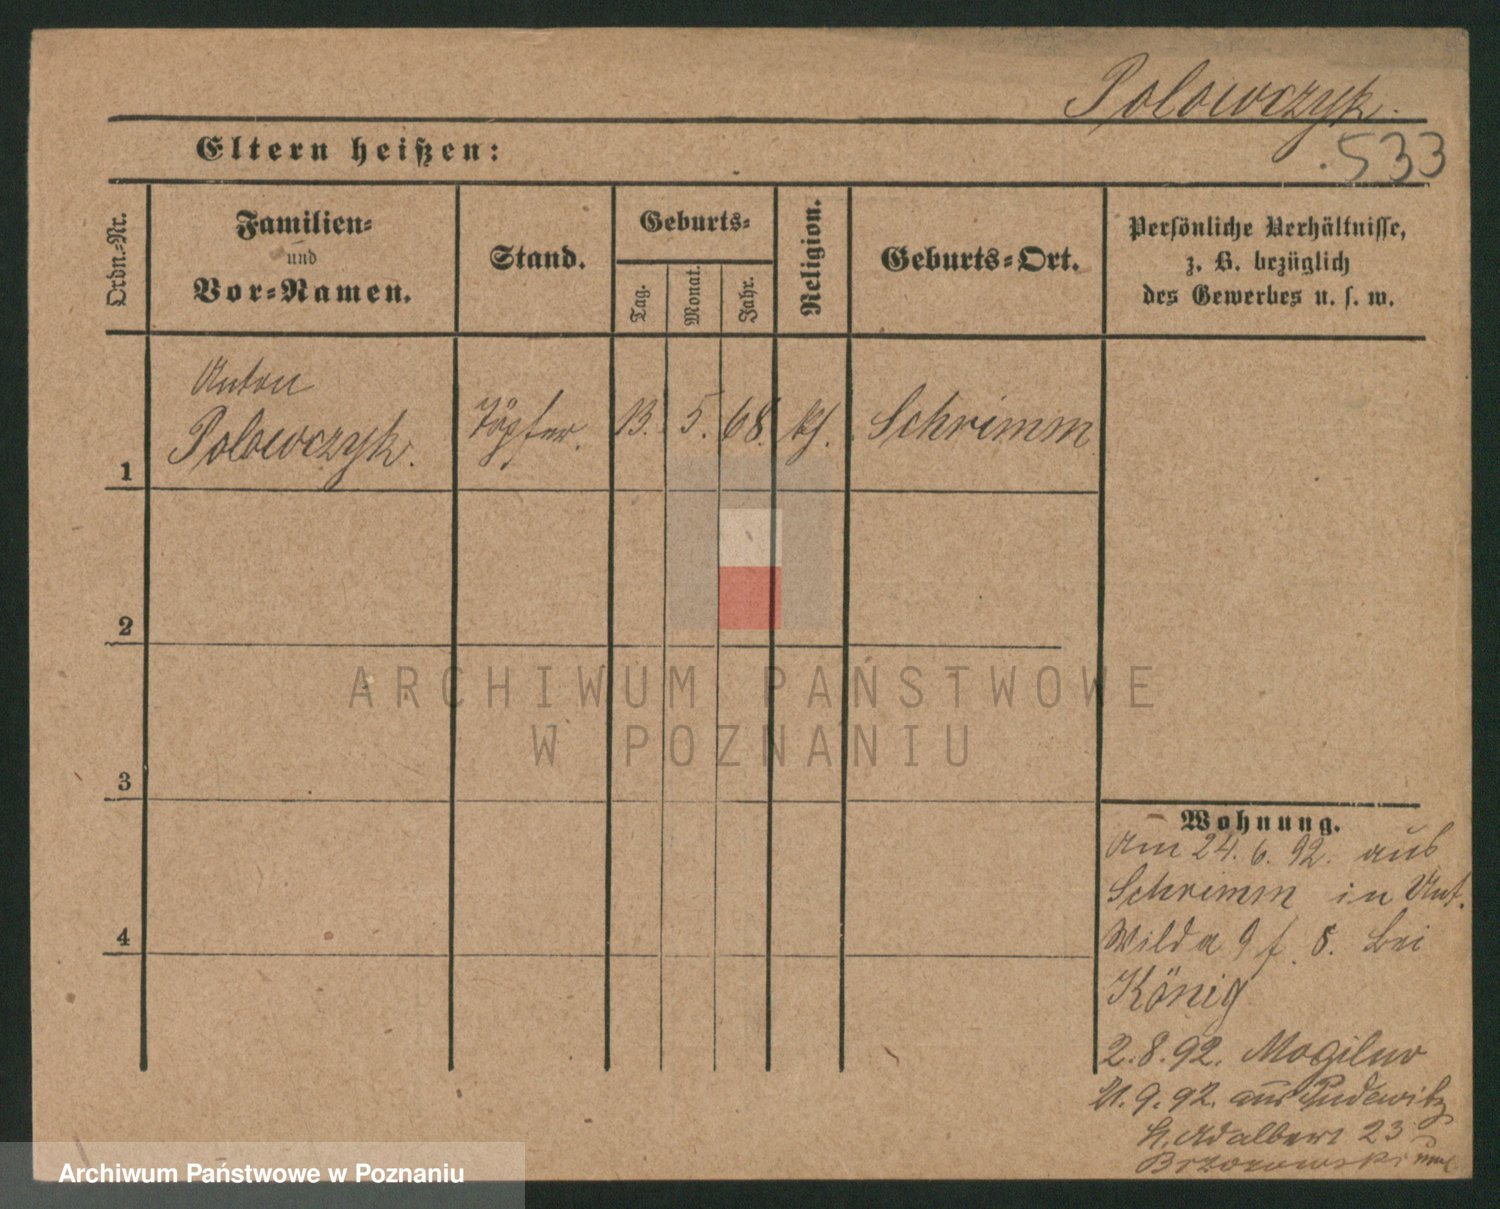 Polowczyk.
533
Eltern heißen:
Ordn.-Nr.
Familien-
und
Vor-Namen.
Stand.
Geburts-
Tag.
Monat.
Jahr.
Religion.
Geburts-Ort.
Persönliche Verhältnisse,
z. B. bezüglich
des Gewerbes u. s. w.
1
Anton
Polowczyk.
Töpfer.
13.
5.
68.
kf.
Schrimm
2
3
4
Wohnung.
Am 24. 6. 92. aus
Schrimm in Unt.
Wilda 9 f. 8. bei
König
2. 8. 92. Mogilno
21. 9. 92. aus Pudewitz
St. Adalbert 23
Brzozowski
ARCHIWUM PAŃSTWOWE
W POZNANIU
Archiwum Państwowe w Poznaniu